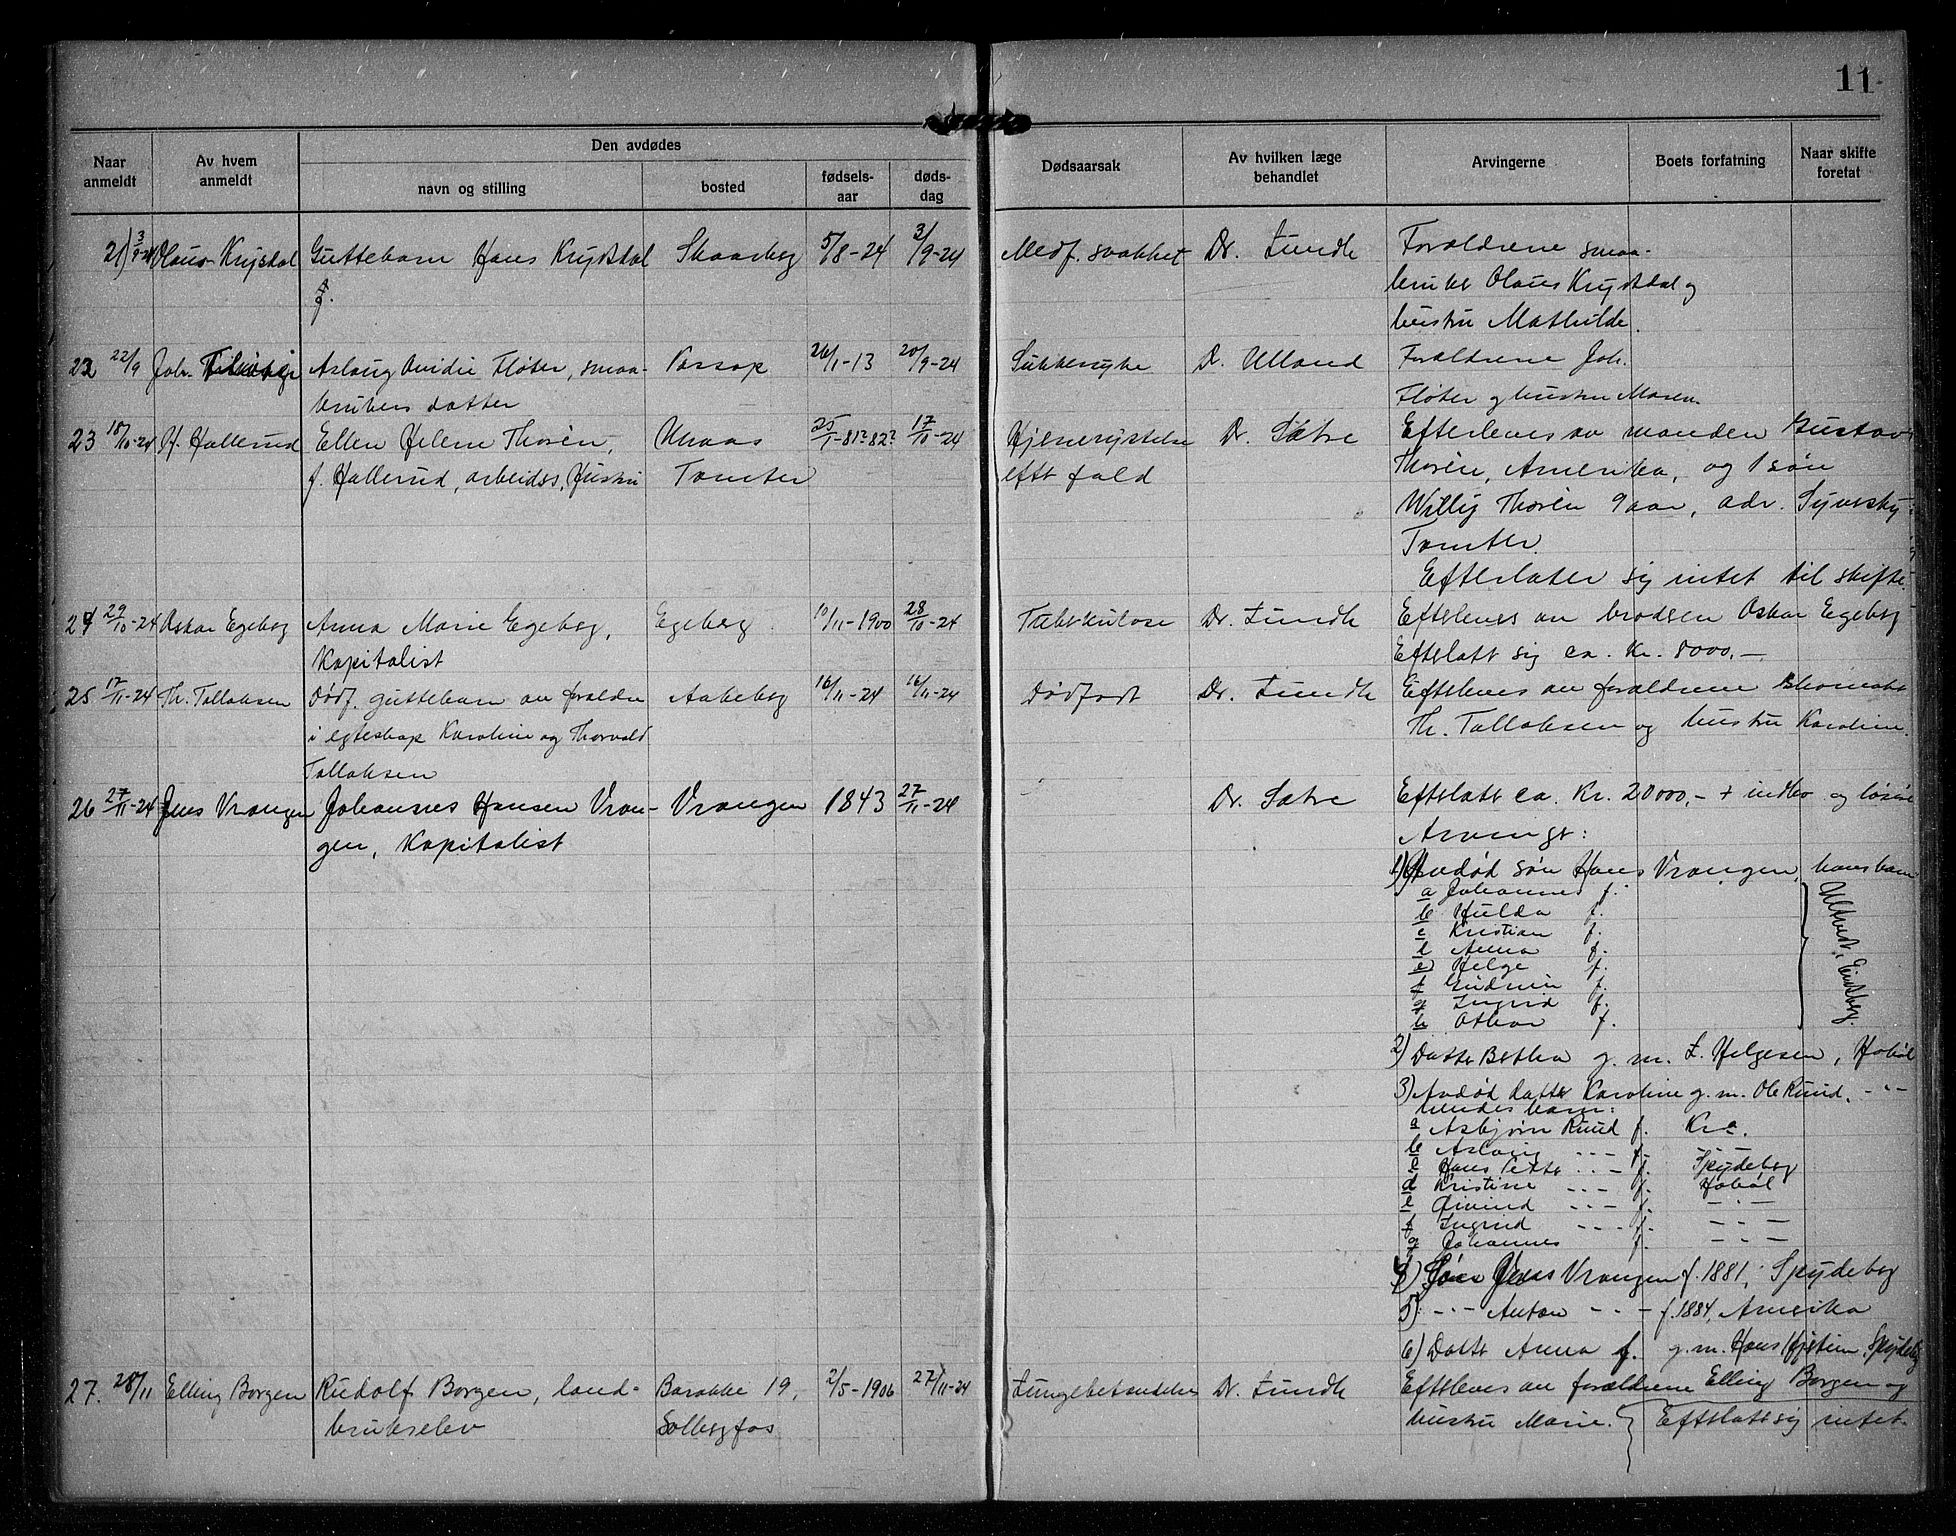 11
Naar anmeldt
Av hvem anmeldt
Den avdødes
navn og stilling
bosted
fødselsaar
dødsdag
Dødsaarsak
Av hvilken læge behandlet
Arvingerne
Boets forfatning
Naar skifte foretat
21) 3/9-24 Olaus Krysdal Guttebarn Hans Krystdal Skaarberg 5/8-24 3/9-24 Medf. svakhet Dr. Lundh Forældrene smaa-
f. bruker Olaus Krystdal og
hustru Mathilde.
22 22/9 Joh. Aslaug Ovidie Fløter, smaa- 26/1-13 20/9-24 Sukkersyke D. Ulland Forældrene Joh.
brukers datter Fløter og hustru Maren.
23 18/10-24 H. Hallerud Ellen Helene Thorèn, Knaas 25/1-81?82? 17/10-24 Hjernerystelse Dr. Sætre Efterleves av manden Gustav
f. Hallerud, arbeiders, Hustru Tomter efter fald Thorèn, Amerika, og 1 søn
Willy Thorèn 9 aar, adr.
Tomter.
Efterlater sig intet til skifte.
24 29/10-24 Oskar Egeberg Anna Marie Egeberg, Egeberg 10/11-1900 28/10-24 Tuberkulose Dr. Lundh Efterleves av brodren Oskar Egeberg
Kapitalist Efterlatt sig ca. Kr. 8000,-
25 17/11-24 Th. Tallaksen Dødf. guttebarn av forældre Aakeberg 16/11-24 16/11-24 Dødfødt Dr. Lundh Efterleves av forældrene
i egteskap Karoline og Thorvald Th. Tallaksen og hustru Karoline.
Tallaksen
26 27/11-24 Jens Vrangen Johannes Hansen Vran- Vrangen 1843 27/11-24 Dr. Sætre Efterlatt ca. Kr. 20000,- + indbo og løsøre
gen, Kapitalist Arvinger:
1) Avdød søn Hans Vrangen, hans barn
a Johannes f.
b Hulda f.
c Kristian f.
d Anna f.
e Helge f.
f Gudrun f.
g Ingrid f.
h Othar f.
2) Datter Betha g. m. L. Helgesen, Hobøl
3) Avdød datter Karoline g. m. Ole Ruud, -"-
hendes barn:
a Asbjørn Ruud f. Kra.
b Aslaug -"- f. -"-
c Hans Petter -"- f. Spydeberg
d Kristine -"- f. Hobøl
e Øivind -"- f. -"-
f Ingrid -"- f. -"-
g Johannes f. -"-
4) Søn Jens Vrangen f. 1881, Spydeberg
5) -"- Anton -"- f. 1884, Amerika
6) Datter Anna f. g. m. Hans Spydeberg
27. 28/11 Elling Borgen Rudolf Borgen, land- Barakke 19, 2/5-1906 27/11-24 Lungebetændelse Dr. Lundh Efterleves av forældrene Elling Borgen og
brukselev Solbergfos hustru Marie. Efterlatt sig intet.